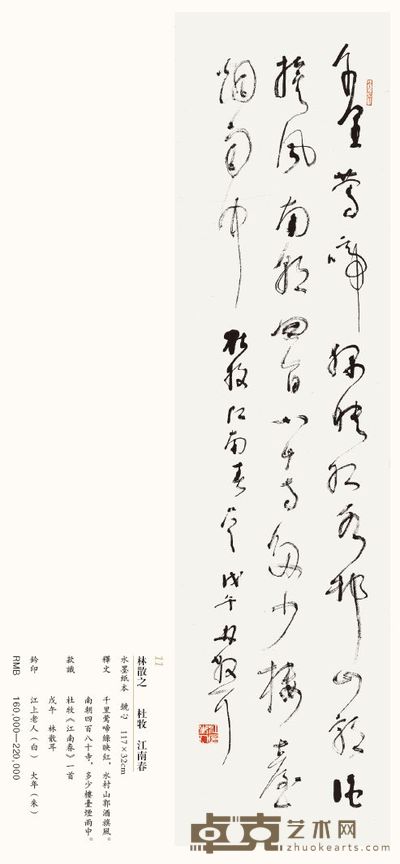 千里莺啼绿映红水村山郭酒
旗风南朝四百八十寺多少楼台
烟雨中
杜牧江南春一首 戊午 林散耳
11
林散之 杜牧 江南春
水墨紙本 鏡心 117×32cm
釋文 千里鶯啼綠映紅,水村山郭酒旗風。
南朝四百八十寺,多少樓臺煙雨中。
款識 杜牧《江南春》一首
戊午 林散耳
鈐印 江上老人(白) 大年(朱)
RMB 160,000—220,000
卓克艺术网
www.zhuokearts.com